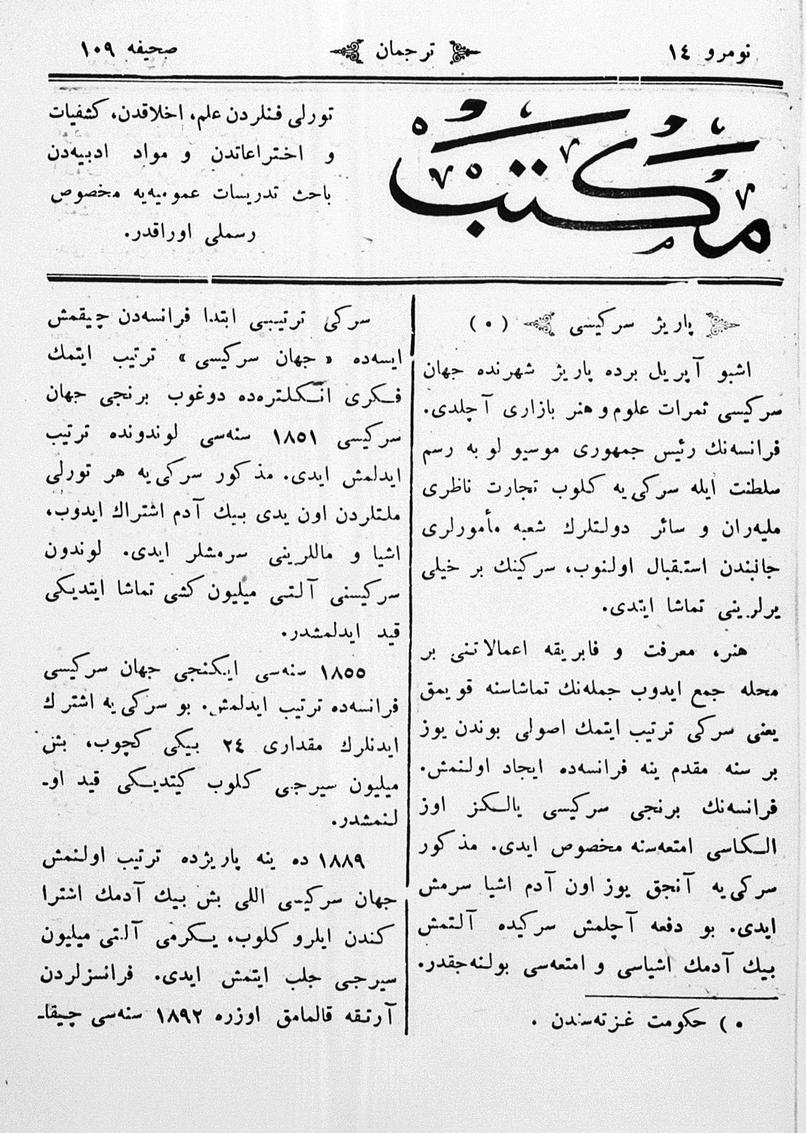 نومرو ١٤
ترجمان
صحیفه ١٠٩
مكتب
تورلی فنلردن علم، اخلاقدن، كشفیات
و اختراعاتدن و مواد ادبیه‌دن
باحث تدریسات عمومیه‌یه مخصوص
رسملی اوراقدر.
پاریژ سركیسی (٥)
اشبو آپریل برده پاریژ شهرنده جهان
سركیسی ثمرات علوم و هنر بازاری آچلدی.
فرانسه‌نك رئیس جمهوری موسیو لو به رسم
سلطنت ایله سركی‌یه كلوب تجارت ناظری
ملیه‌ران و سائر دولتلرك شعبه مأمورلری
جانبندن استقبال اولنوب، سركینك بر خیلی
یرلرینی تماشا ایتدی.
هنر، معرفت و فابریقه اعمالاتنی بر
محله جمع ایدوب جمله‌نك تماشاسنه قویمق
یعنی سركی ترتیب ایتمك اصولی بوندن یوز
بر سنه مقدم ینه فرانسه‌ده ایجاد اولنمش.
فرانسه‌نك برنجی سركیسی یالكز اوز
الكاسی امتعه‌سنه مخصوص ایدی. مذكور
سركی‌یه آنجق یوز اون آدم اشیا سرمش
ایدی. بو دفعه آچلمش سركیده آلتمش
بیك آدمك اشیاسی و امتعه‌سی بولنه‌جقدر.
٥) حكومت غزته‌سندن .
سركی ترتیبی ابتدا فرانسه‌دن چیقمش
ایسه‌ده «جهان سركیسی» ترتیب ایتمك
فكری انكلتره‌ده دوغوب برنجی جهان
سركیسی ١٨٥١ سنه‌سی لوندونده ترتیب
ایدلمش ایدی. مذكور سركی‌یه هر تورلی
ملتلردن اون یدی بیك آدم اشتراك ایدوب،
اشیا و ماللرینی سرمشلر ایدی. لوندون
سركیسنی آلتی میلیون كشی تماشا ایتدیكی
قید ایدلمشدر.
١٨٥٥ سنه‌سی ایكنجی جهان سركیسی
فرانسه‌ده ترتیب ایدلمش. بو سركی‌یه اشترك
ایدنلرك مقداری ٢٤ بیكی كچوب، بش
میلیون سیرجی كلوب كیتدیكی قید او-
لنمشدر.
١٨٨٩ ده ینه پاریژده ترتیب اولنمش
جهان سركیسی اللی بش بیك آدمك اشترا
كندن ایلرو كلوب، یكرمی آلتی میلیون
سیرجی جلب ایتمش ایدی. فرانسزلردن
آرتقه قالمامق اوزره ١٨٩٢ سنه‌سی چیقا-